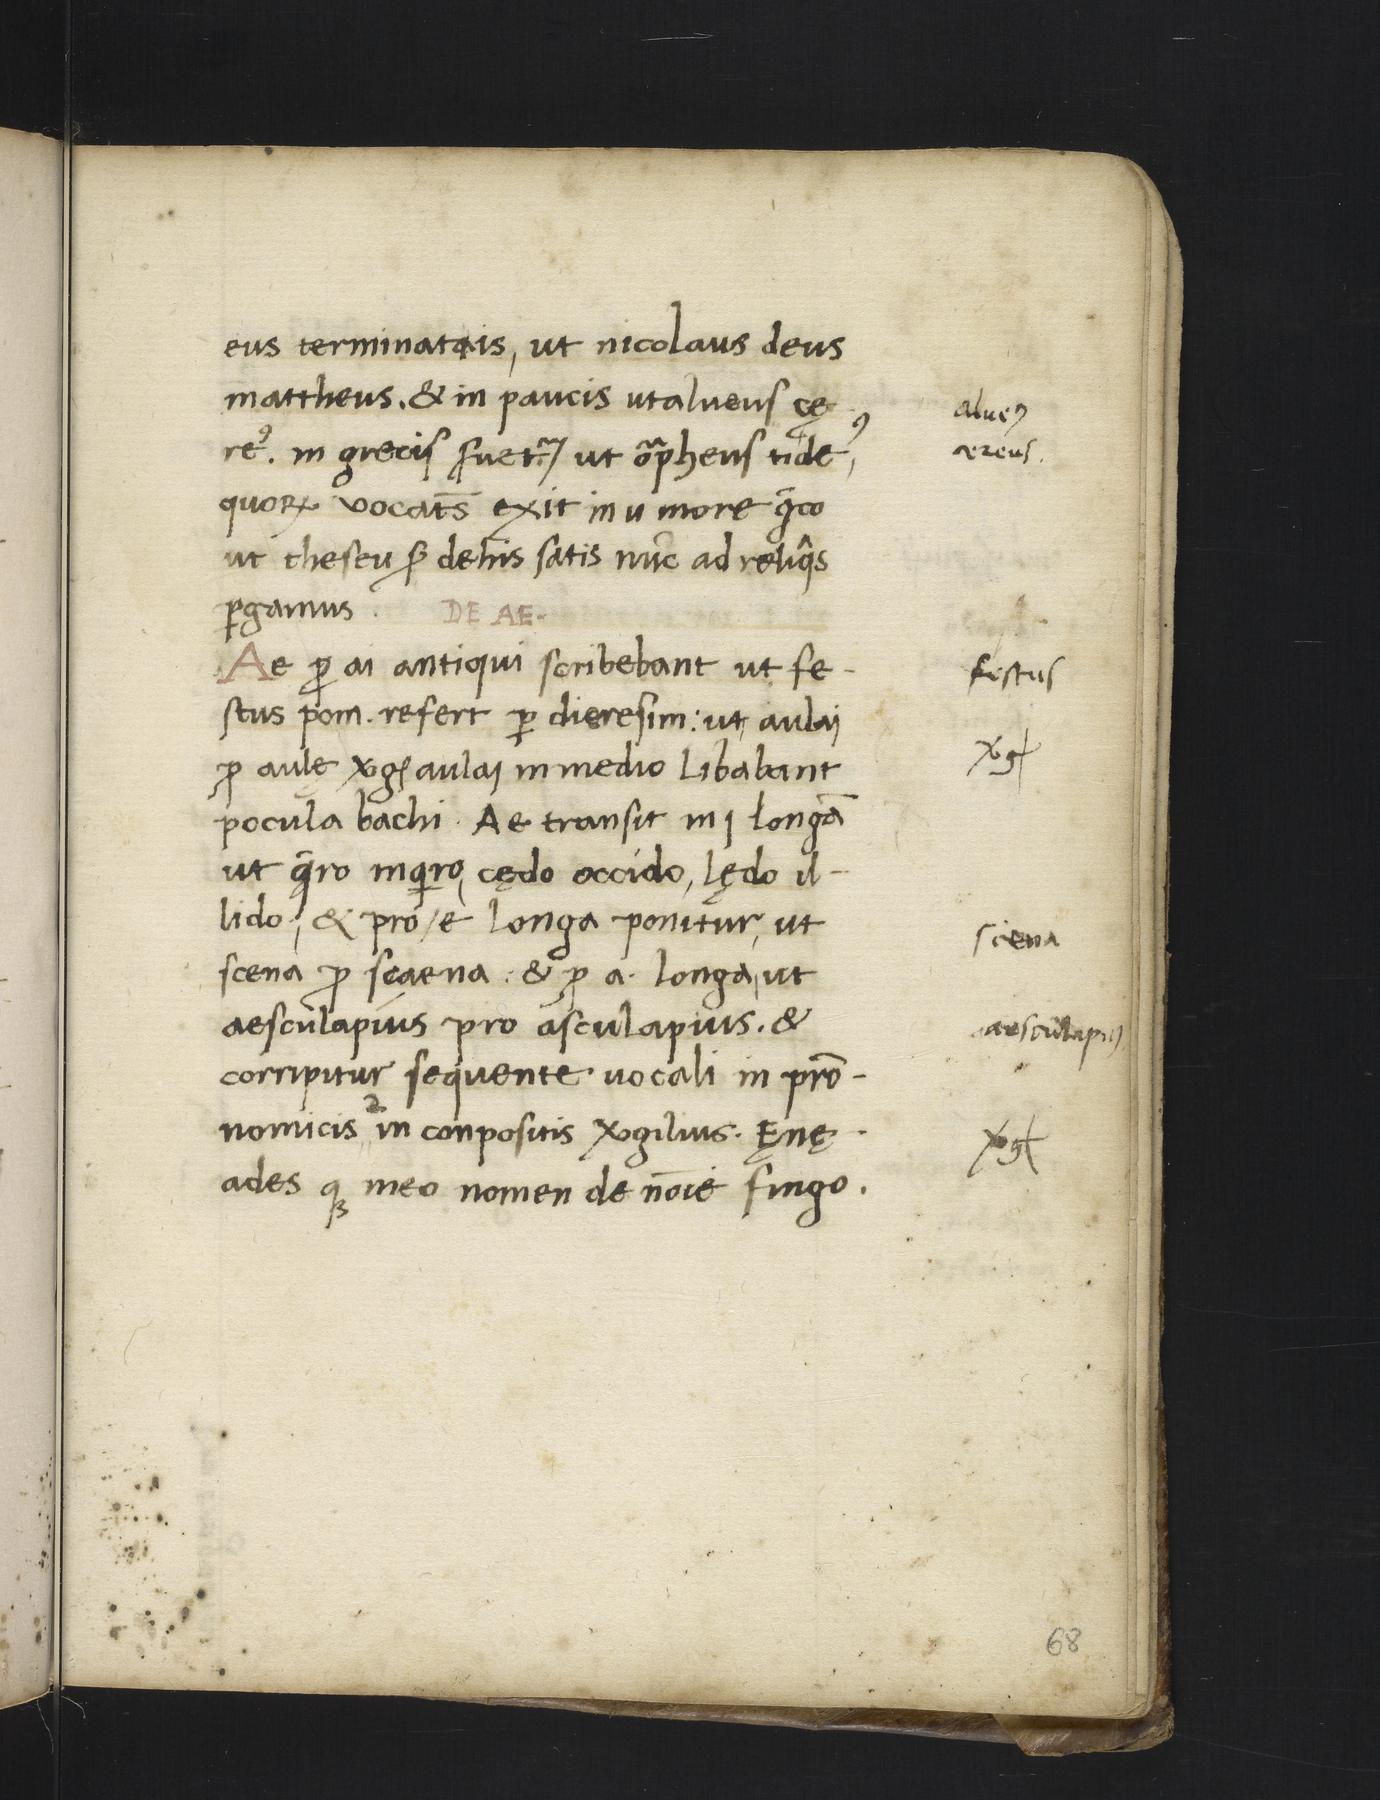 eus terminatis, ut nicolaus deus
mattheus. & in paucis ut alueus cę
reꝰ. in grecis ut orpheus tideꝰ,
quoꝝ vocatͫs exit in u more gͣco
ut theseu ſꝫ de his satis nūc ad reliqͣs
ꝑgamus .
DE AE.
Ae ꝓ ai antiqui scribebant ut fe-
stus pom. refert ꝑ dieresim: ut aulaj
ꝓ aulę aulaj in medio Libabant
pocula bachi. Ae transit in j longā
ut qͣro inqͥro, cędo occido, lędo il-
lido, & pro /e longa ponitur, ut
scena ꝓ scaena : & ꝓ a. longa, ut
aesculapius pro asculapius. &
corripitur sequente uocali in prō-
nomicis 2 in conpositis Ꝟgilius. Ęnę
ades qꝫ meo nomen de nōie fingo.
alueꝰ
ereus.
festus
Ꝟgł
scena
aesculapiꝰ
Ꝟgł
68